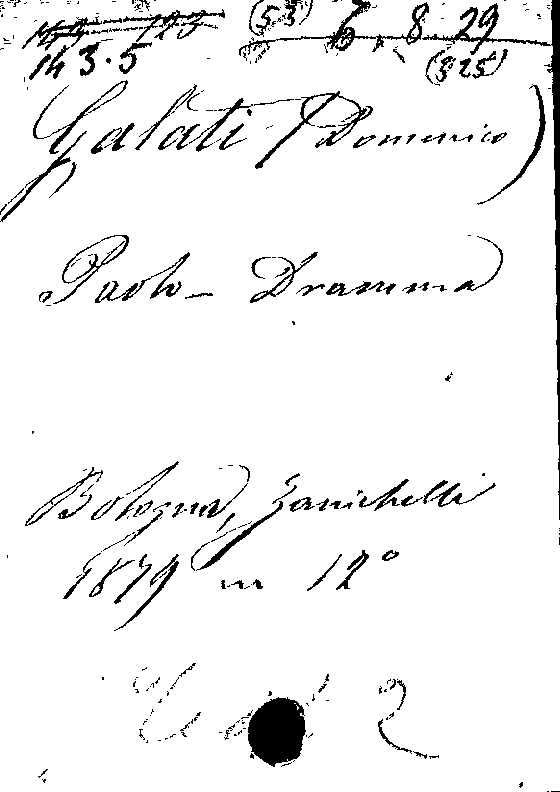 (53) 6. 8. 29
143.5 (325)
Galati (Domenico)
Paolo - Dramma
Bologna, Zanichelli
1879 in 12°
2